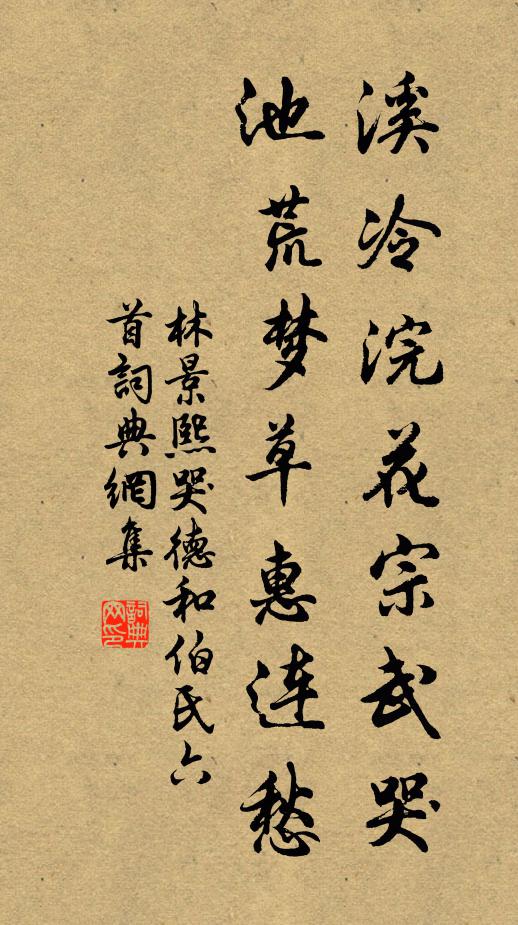 溪冷浣花宗武哭
池荒梦草惠连愁
林景熙哭德和伯氏六
首詞典網集
詞典
网印